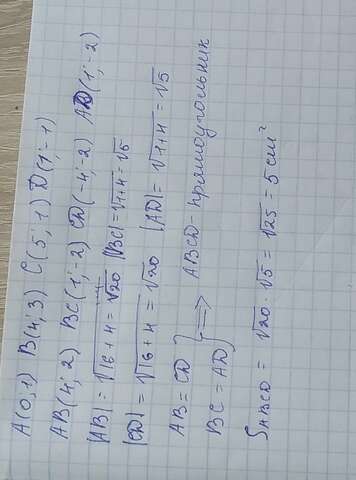 A(0,1) B(4;3) C(5;1) D(1;-1)
AB(4;2) BC(1;-2) CD(-4;-2) AD(1;-2)
|AB| = √16+4 = √20 |BC| = √1+4 = √5
|CD| = √16+4 = √20 |AD| = √1+4 = √5
AB = CD
BC = AD } ⇒ ABCD - прямоугольник
SABCD = √20 · √5 = √25 = 5 cm²